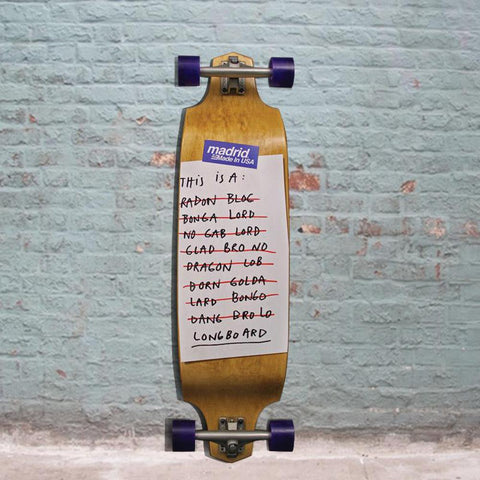 madrid
Made In USA
THIS IS A:
RADON BLOG
BONGA LORD
NO GAB LORD
GLAD BRO NO
DRAGON LOB
BORN GOLDA
LARD BONGO
DANG BRO LO
LONGBOARD